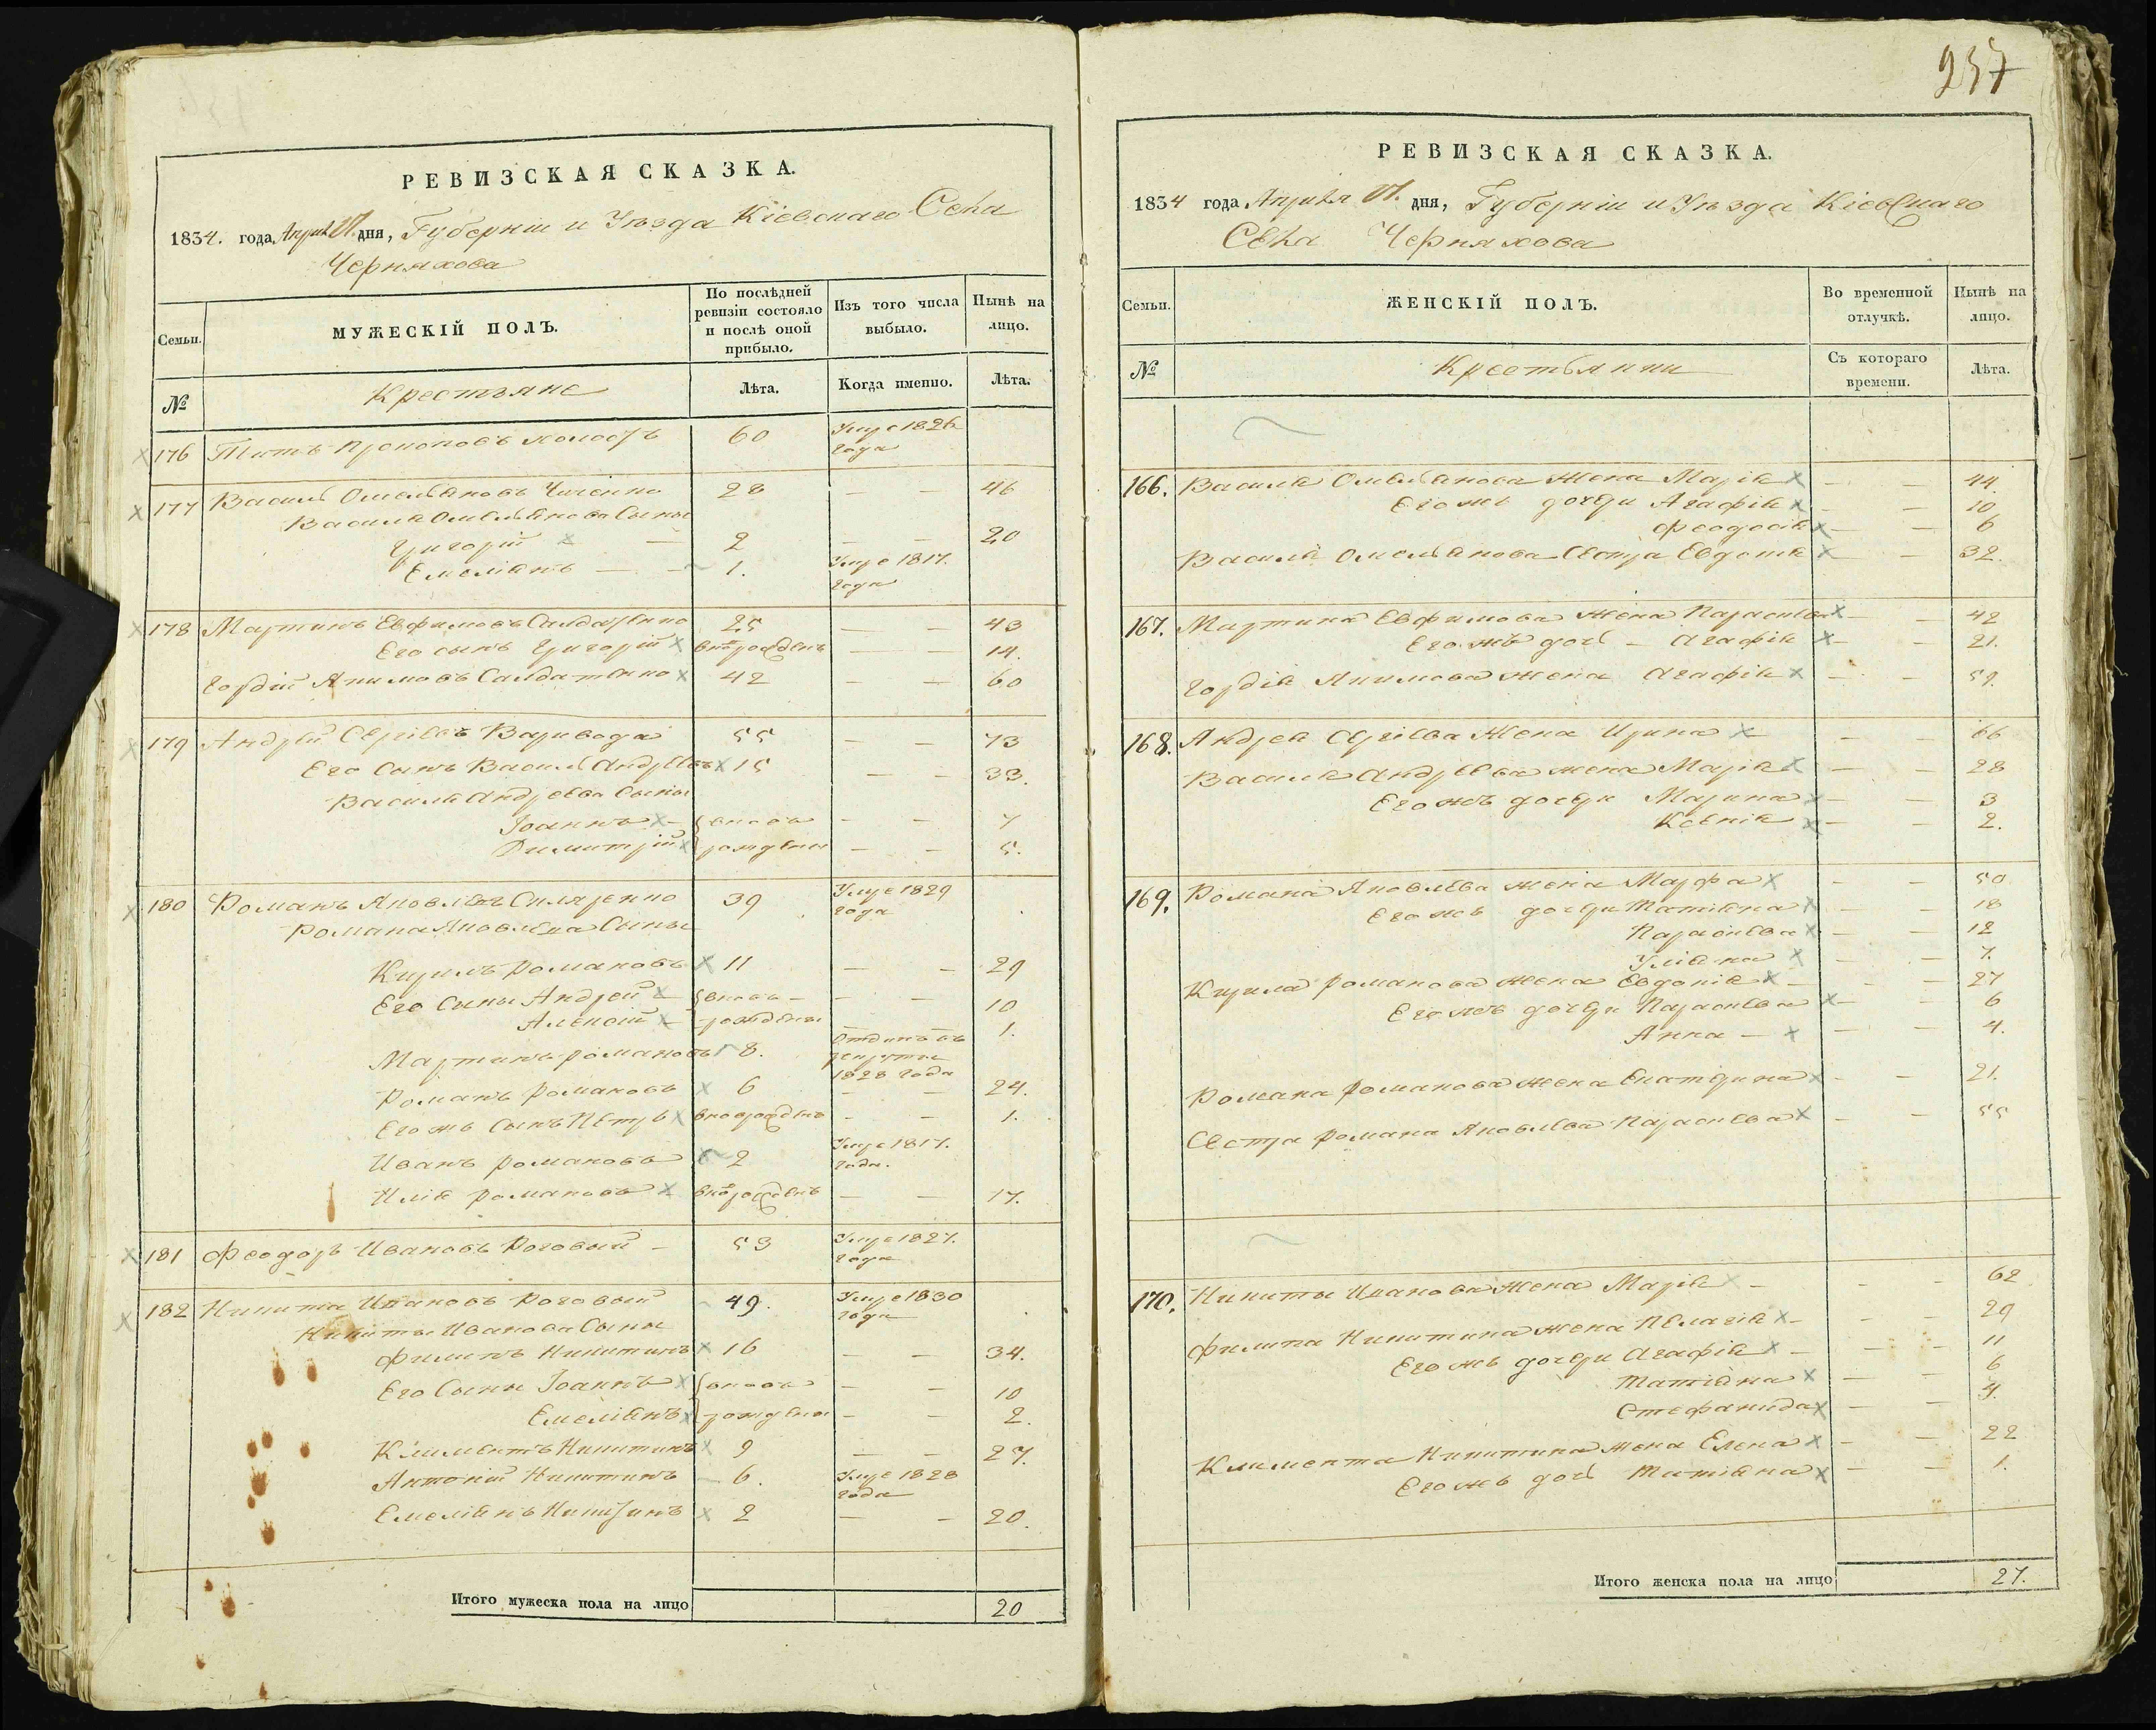 РЕВИЗСКАЯ СКАЗКА.
1834. года Апреля 17. дня, Губерніи и Уѣзда Кіевскаго Села
Черняхова
Семьи.
МУЖЕСКІЙ ПОЛЪ.
По послѣдней ревизіи состояло и послѣ оной прибыло.
Изъ того числа выбыло.
Нынѣ на лицо.
№
Крестьяне
Лѣта.
Когда именно.
Лѣта.
176 Титъ Прокоповъ холостъ 60 Умре 1826 года
177 Василь Омельановъ 28 — — 46
Василя Омельанова Сыны
Григорій — 2 — — 20
Емеліанъ — — 1. Умре 1817. года
178 Мартинъ Евфимовъ Салдатенко 25 — — 43
Его сынъ Григорій вновъ рожденъ — — 14.
Гордій Якимовъ Салдатенко 42 — — 60
179 Андрей Сергіевъ Варивода 55 — — 73
Его Сынъ Василь Андреевъ 15 — — 33.
Василя Андреева Сыны
Іоаннъ — вновъ — — 7
Димитрій рождены — — 5.
180 Романъ Яковлевъ Скляренко 39 Умре 1829 года
Романа Яковлева Сыны
Кирилъ Романовъ 11 — — 29
Его Сыны Андрей — вновъ — — — 10
Алексій — рождены 1.
Мартинъ Романовъ 8. Отданъ въ рекруты 1828 года
Романъ Романовъ 6 — — 24.
Его жъ Сынъ Петръ вновъ рожденъ — — 1.
Иванъ Романовъ 2 Умре 1817. года.
Илія Романовъ вновъ рожденъ — — 17.
181 Феодоръ Ивановъ Роговый — 53 Умре 1827. года
182 Никита Ивановъ Роговый 49. Умре 1830 года
Никиты Иванова Сыны
Филипъ Никитинъ 16 — — 34.
Его Сыны Іоаннъ вновъ — — 10
Емеліанъ рождены — — 2.
Климентъ Никитинъ 9 — — 27.
Антоній Никитинъ 6. Умре 1828 года
Емеліанъ Никитинъ 2 — — 20.
Итого мужеска пола на лицо 20
237
РЕВИЗСКАЯ СКАЗКА.
1834 года Апреля 17. дня, Губерніи и Уѣзда Кіевскаго
Села Черняхова
Семьи.
ЖЕНСКІЙ ПОЛЪ.
Во временной отлучкѣ.
Нынѣ на лицо.
№
Крестьянки
Съ котораго времени.
Лѣта.
166. Василя Омельанова жена Марія — — 44.
Его жъ дочери Агафія — — 10
Феодосія — — 6
Василя Омельанова Сестра Евдокія — 32.
167. Мартина Евфимова жена Параскева — — 42
Его жъ дочь — Агафія — — 21.
Гордія Якимова жена Агафія — — 59.
168. Андрея Сергіева Жена Ирина — — 66
Василя Андреева жена Марія — — 28
Его жъ дочери Марина — — 3
Ксенія — — 2.
169. Романа Яковлева жена Марфа — — 50
Его жъ дочери Татіана — — 18
Параскева — — 12
Уліана — — 7.
Кирила Романова жена Евдокія — — — 27
Его жъ дочери Параскева — — 6
Анна — — — 4.
Романа Романова жена Екатерина — — 21.
Сестра Романа Яковлева Параскева — — 55
170. Никиты Иванова жена Марія — — — 62
Филипа Никитина жена Пелагія — — — 29
Его жъ дочери Агафія — — — 11
Татіана — — 6
Стефанида — — 4.
Климента Никитина жена Елена — — 22
Его жъ дочь Татіана — — 1.
Итого женска пола на лицо 27.